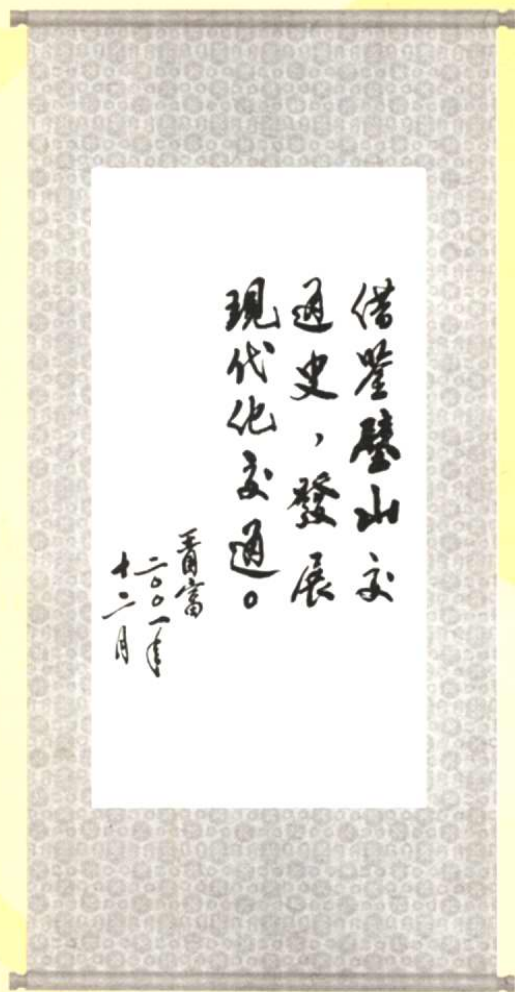 借鉴璧山交
通史，發展
現代化交通。
富
二〇〇一年
十二月